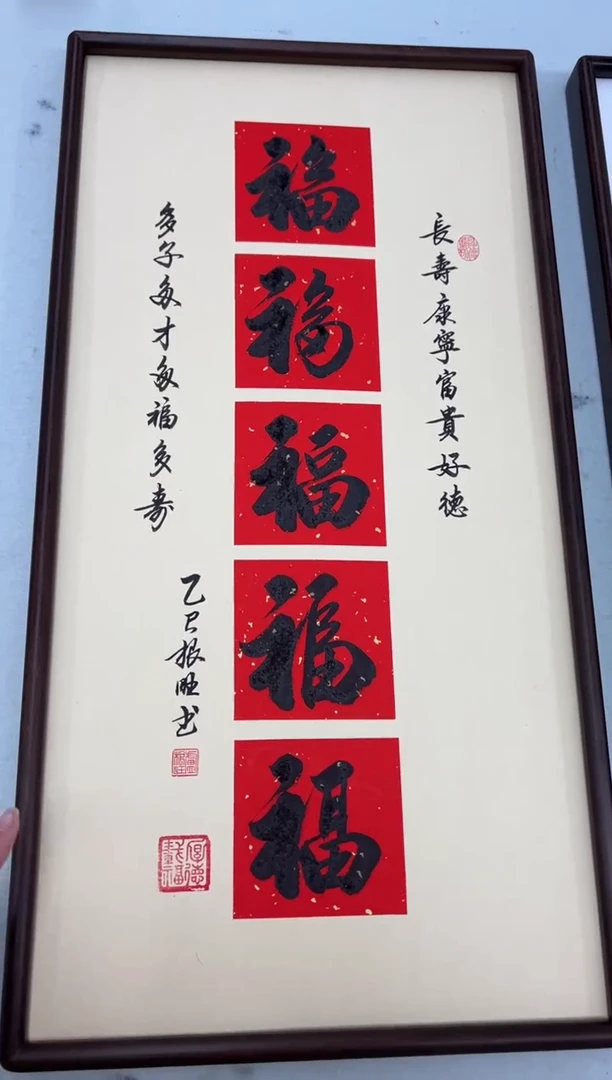 長壽康寧富貴好德
福
福
福
福
福
多子多才多福多寿
乙巳根旺书
厚德載福